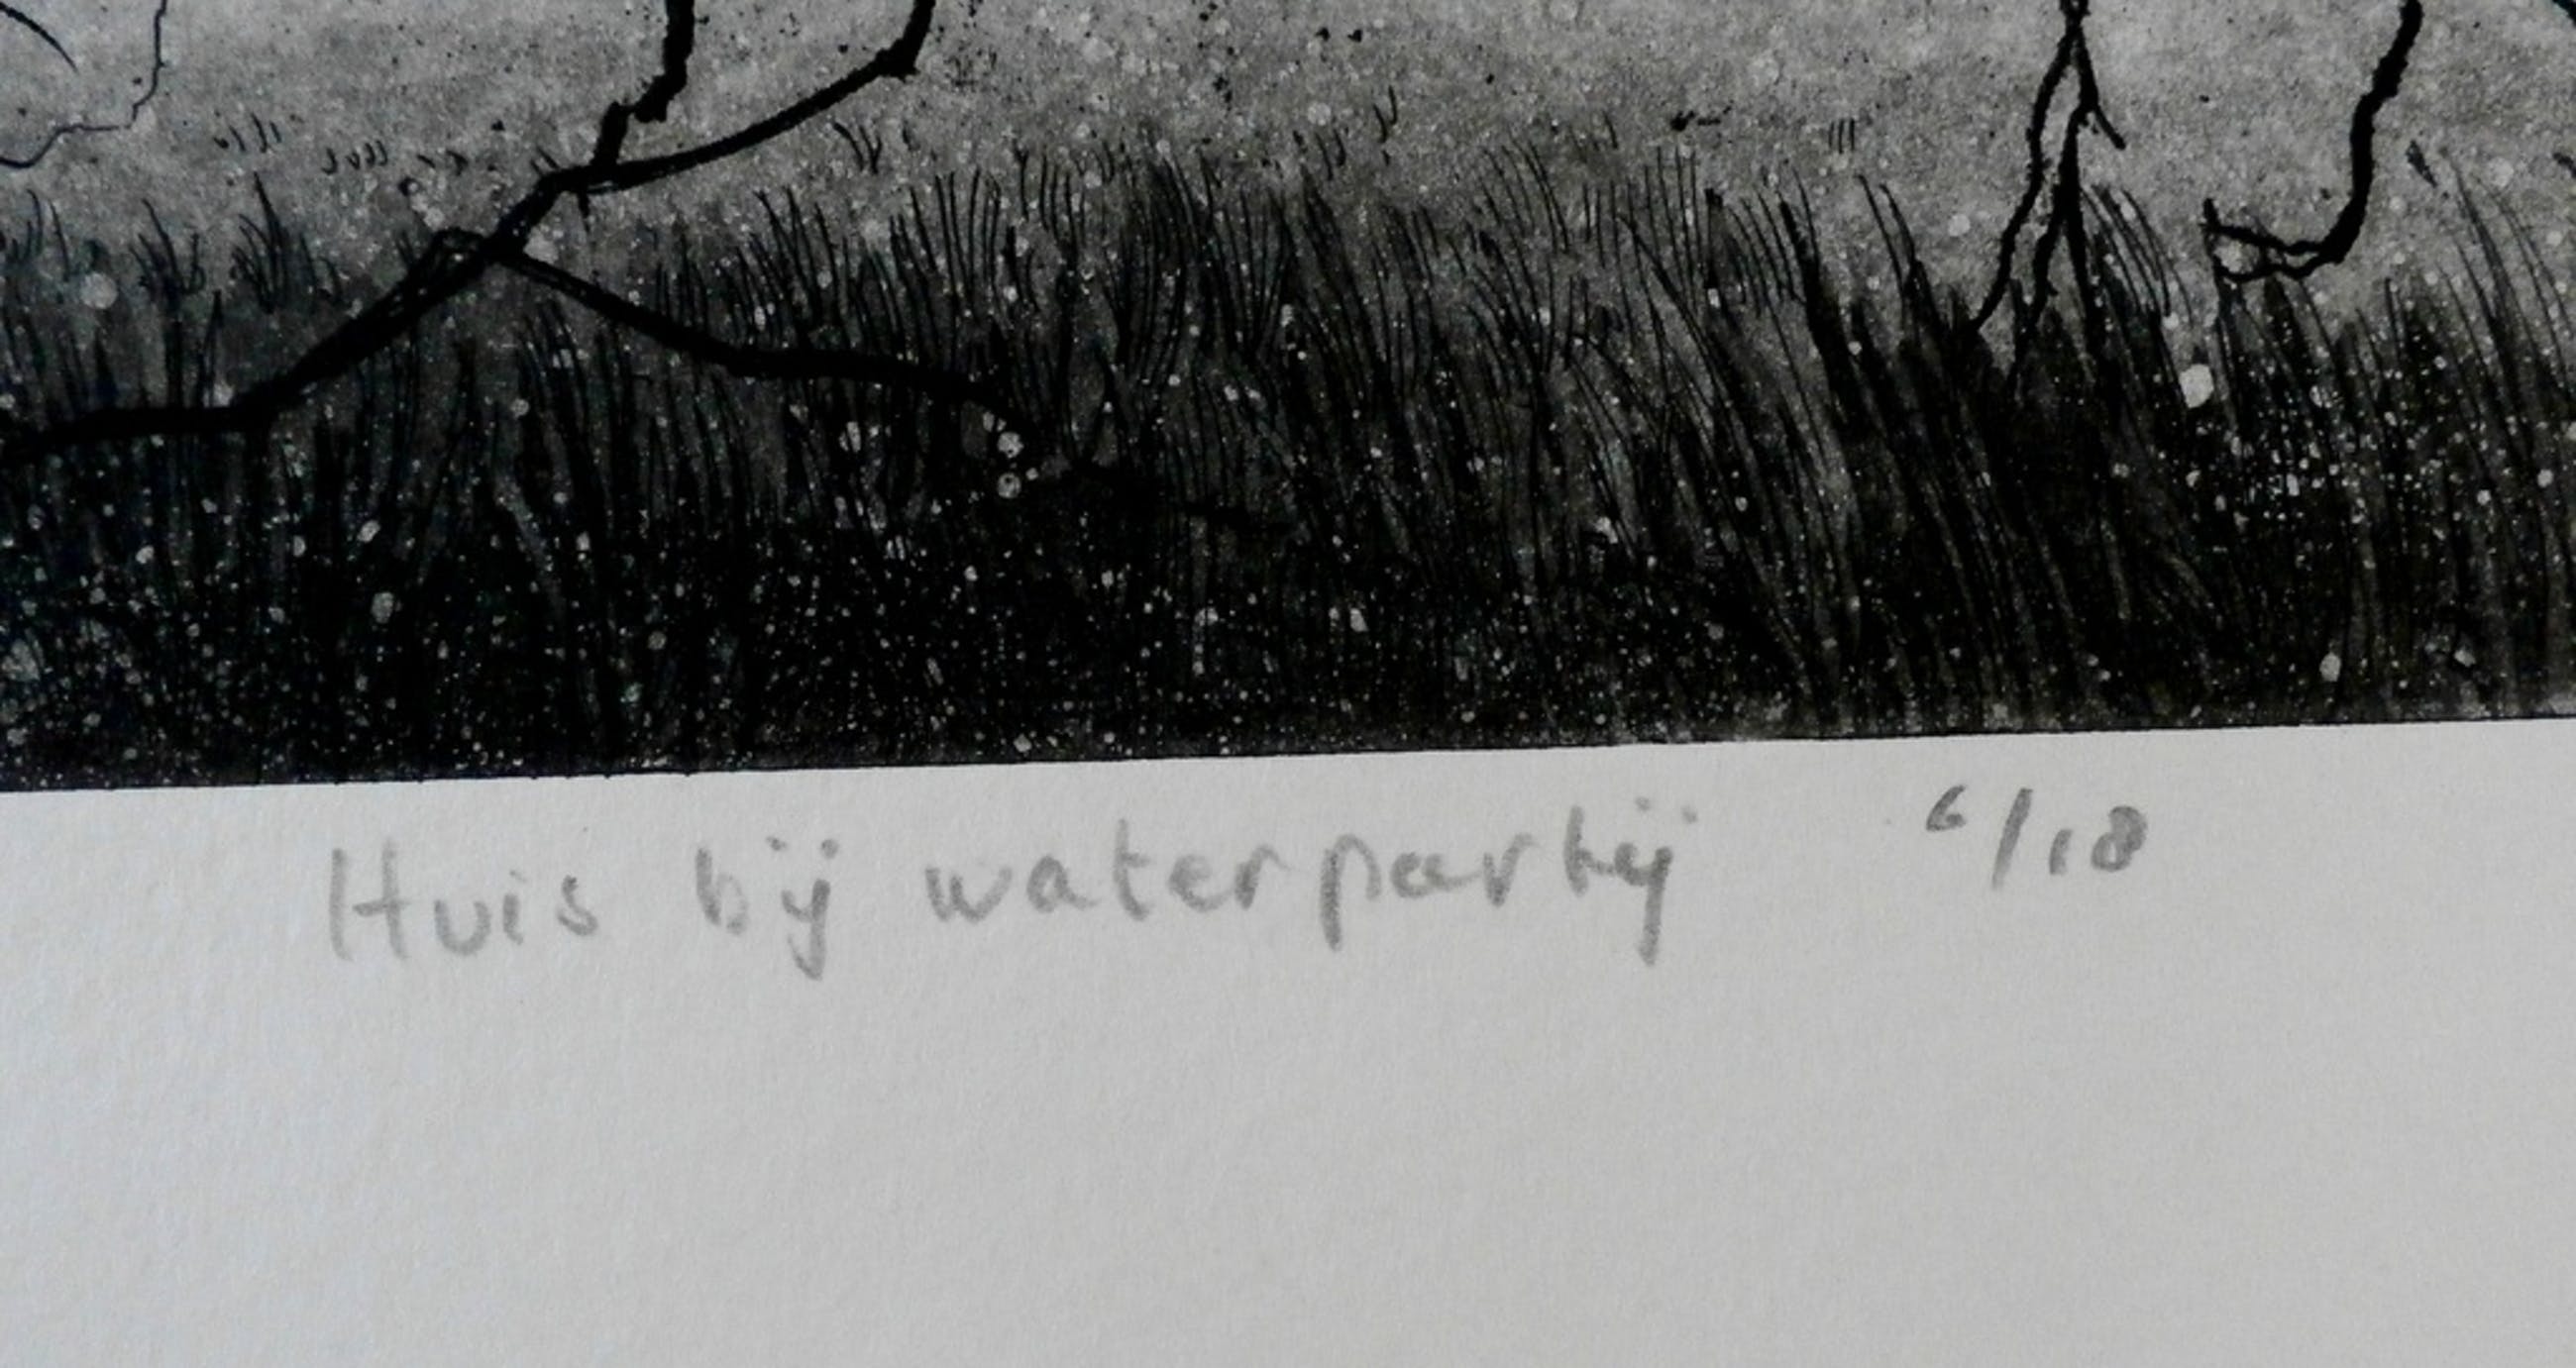 Huis bij waterpartij 6/18